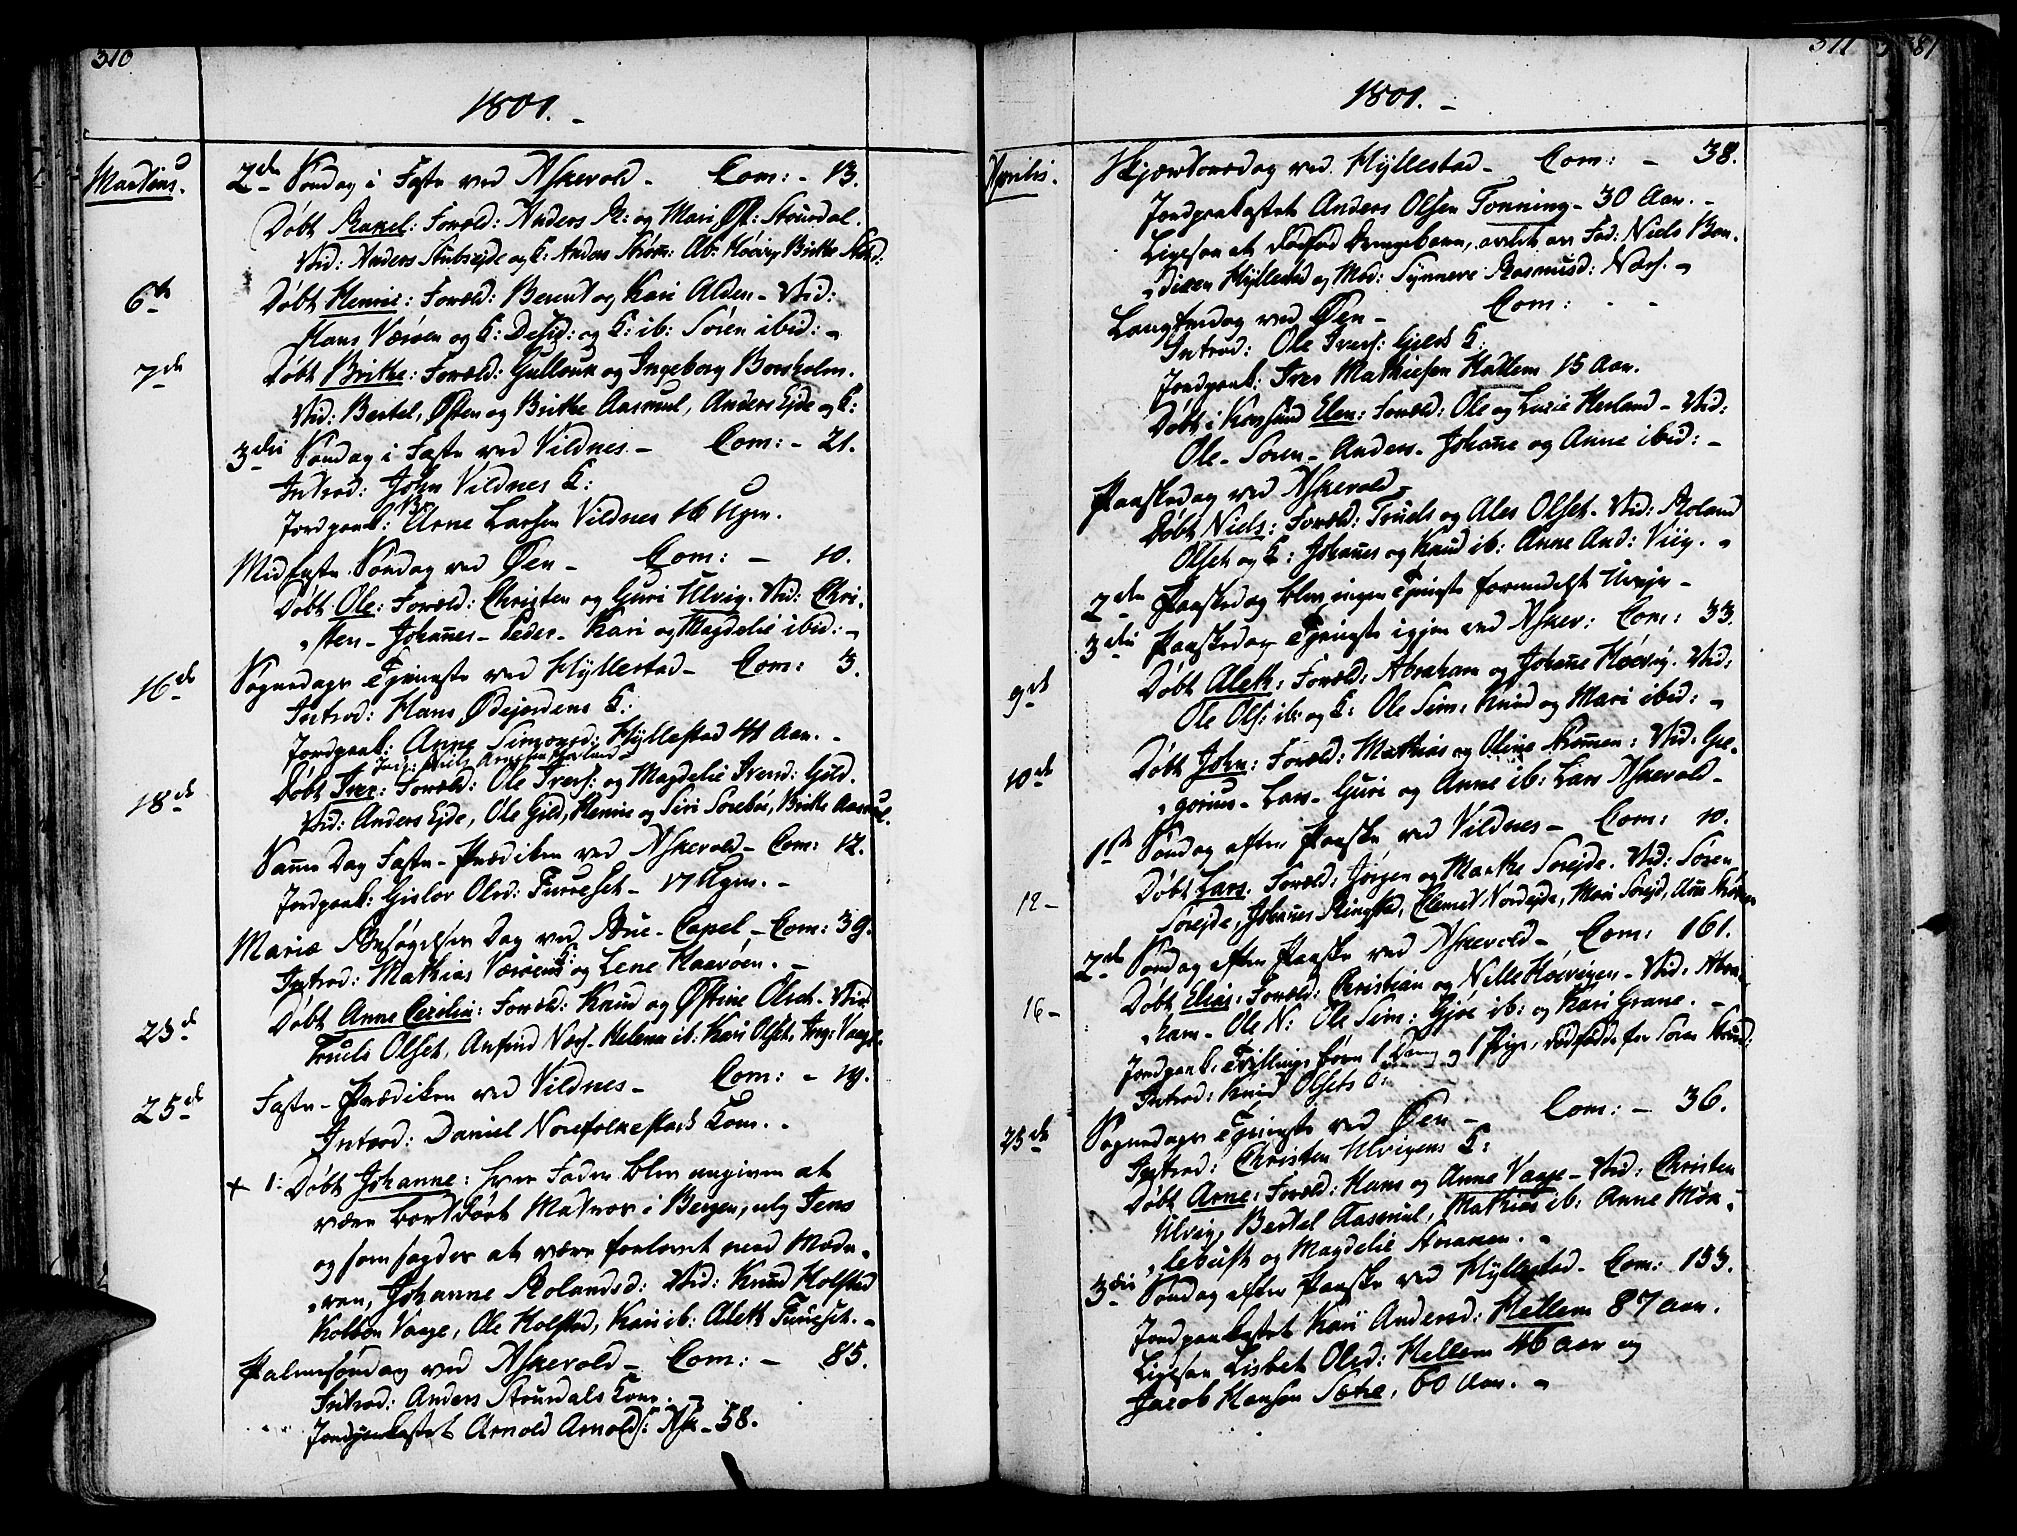 310
1801. -
Martius.
2den Søndag i Faste ved Askevold - Com: - 13.
Døbt Rakel: Foræld: Anders R: og Mari Øst: Stoურdal.
Vid: Anders Stubsejde og K: Anders Strøm: Ab: Høevig Brithe
6te Døbt Henric: Foræld: Berent og Kari Alden - Vid:
Hans Værøen og K: Desid: og K: ib: Søren ibid: -
7de Døbt Brithe: Foræld: Gullouk og Ingeborg Borsholm.
Vid: Bertel, Østen og Brithe Aasnul, Anders Ejde og K:
3die Søndag i Faste ved Vildnes - Com: - 21.
Introd: John Vildnes K:
Jordpaak: Arne Larsen Vildnes 16 Ugm.
Midfaste Søndag ved Øen - Com: - 10.
Døbt Ole: Foræld: Christen og Guri Ulvig. Vid: Chri-
sten - Johañes - Peder - Kari og Magdelie ibid: -
16de Søgnedags Tjeneste ved Hyllestad - Com: 3.
Introd: Hans Ødejordens K:
Jordpaak: Anne Simonsd: Hyllestad 41 Aar. -
18de Døbt Iver: Foræld: Ole Ivers: og Magdelie Iversd: Gild.
Vid: Anders Ejde, Ole Gild, Henric og Siri Sørebøe, Brithe Aasnul.
Saṁe Dag Faste-Prædiken ved Askevold - Com: 12.
Jordpaak: Gislov Olsd: Furreset - 17 Ugm. -
Mariæ Besøgelses Dag ved Bue-Capel - Com: 39.
Introd: Mathias Værøens K: og Lene Haarøen. -
23de Døbt Anne Cecilia: Foræld: Knud og Østine Olset. Vid:
Truels Olset, Anfind Næss - Helena ib: Kari Olset, Ing: Vaage
25de Faste-Prædiken ved Vildnes - Com: - 19.
Introd: Daniel Norefolkestads Kone. -
+ 1: Døbt Johanne: hvis Fader blev angiven at
være bortdøet Matros i Bergen, ulg Jens
og som sagdes at være forlovet med Mode-
ren, Johanne Rolandsd: Vid: Knud Holstad
Kolbøn Vaage, Ole Holstad, Kari ib: Aleth Furreset. -
Palmesøndag ved Askevold - Com: - 85.
Introd: Anders Stourdals Kone. -
Jordpaakastet Arnold Arnolds: Ask - 58.
311
381
1801. -
Aprilis.
Skjærtorsdag ved Hyllestad - Com: - 38.
Jordpaakastet Anders Olsen Tonning - 30 Aar. -
Ligesaa et dødfød Drengebarn, avlet av Fad: Niels Ben-
dixen Hyllestad og Mod: Synneve Rasmusd: Næss. -
Langfredag ved Øen - Com: - -
Introd: Ole Ivers: Gilds K:
Jordpaak: Iver Mathiesen Hatlem 15 Aar.
Døbt i Korssund Elen: Foræld: Ole og Lucie Herland - Vid:
Ole - Søren - Anders - Johañe og Anne ibid: -
Paaskedag ved Askevold -
Døbt Niels: Foræld: Truels og Ales Olset - Vid: Roland
Olset og K: Johañes og Knud ib: Anne And: Viig. -
2den Paaskedag blev ingen Tjeneste formedelst Uvejr -
3die Paaskedag Tjeneste igjen ved Askev: Com: 33.
9de Døbt Aleth: Foræld: Abraham og Johañe Høevig. Vid:
Ole Ols: ib: og K: Ole Sim: Knud og Mari ibid: -
10de Døbt John: Foræld: Mathias og Oline Strømen: Vid: Gre-
gorius - Lars - Guri og Anne ib: Lars Askevold -
1ste Søndag efter Paaske ved Vildnes - Com: 10.
12 - Døbt Lars. Foræld: Jørgen og Marthe Sørejde. Vid: Søren
Sørejde, Johañes Ringstad, Clemet Nordejde, Mari Sørejd, Añe
2den Søndag efter Paaske ved Askevold - Com: 161.
16 - Døbt Elias: Foræld: Christian og Nille Høevigen - Vid: Abra-
ham - Ole N: Ole Sim: Gjøe ib: og Kari Grane. -
Jordpaak: Tvillingsbørn 1 Dreng og 1 Pige, dødfødde for Søren
Introd: Knud Olsets K:
25de Søgnedags Tjeneste ved Øen - Com: - 36.
Introd: Christen Ulvigens K:
Døbt Arne: Foræld: Hans og Anne Vaage - Vid: Christen
Ulvig, Bertel Aasnul, Mathias ib: Anne
og Magdelie -
3die Søndag efter Paaske ved Hyllestad - Com: 153.
Jordpaakastet Kari Andersd: Hellem 87 Aar.
Ligesaa Lisbet Olsd: Hellem 46 Aar og
Jacob Hansen Sætre, 60 Aar. -